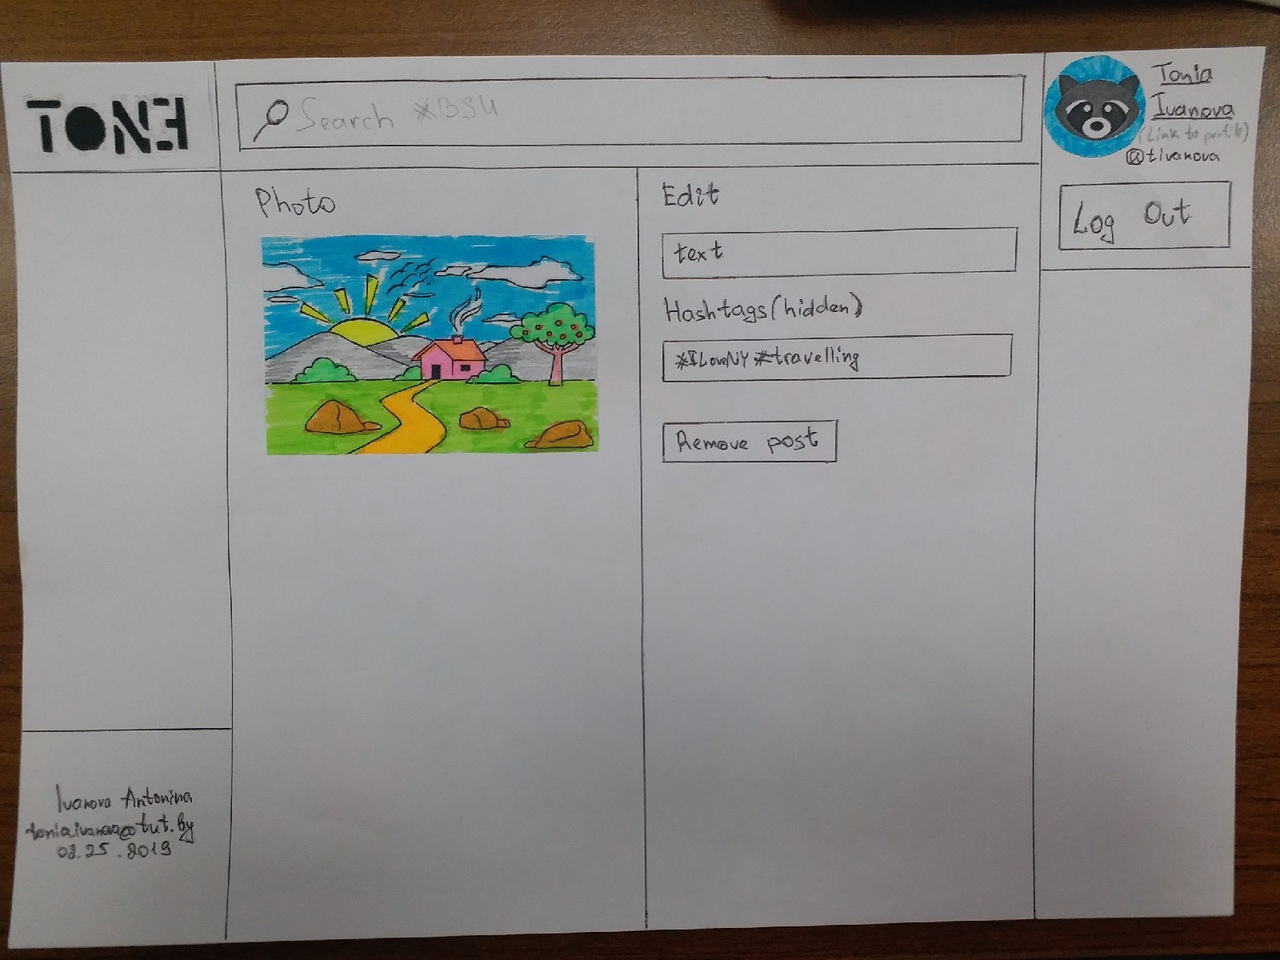 TONE
Search #BSU
Tonia
Ivanova
(Link to profile)
@tivanova
Log Out
Photo
Edit
text
Hashtags(hidden)
#ILoveNY #travelling
Remove post
Ivanova Antonina
toniaivanova@tut.by
02.25.2019